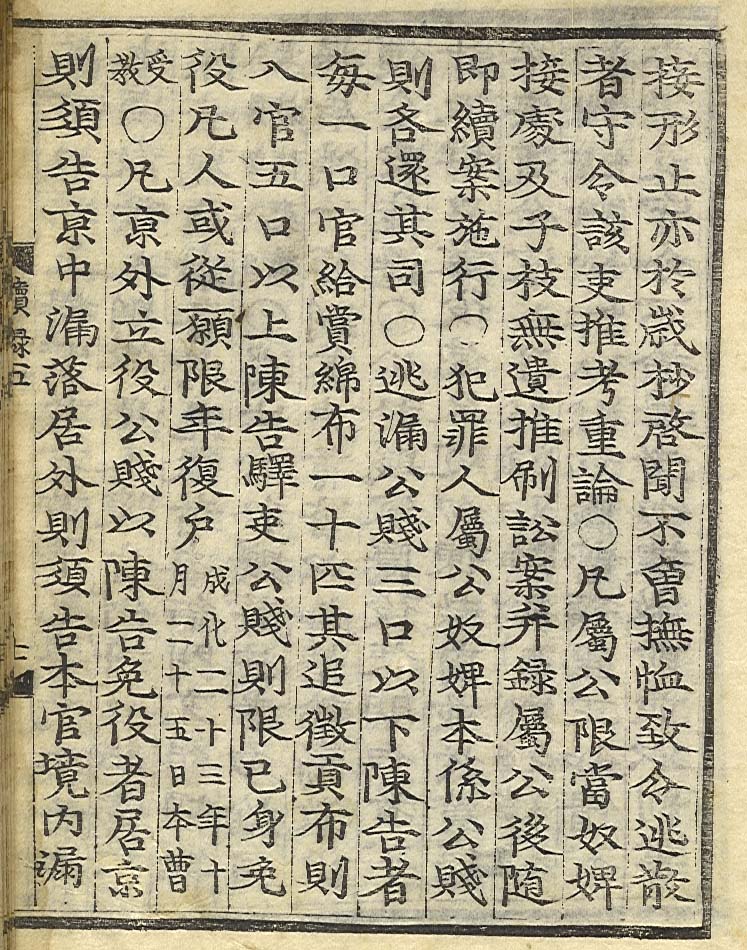 接形止亦於歲抄啓聞不曾撫恤致令逃散
者守令該吏推考重論○凡屬公限當奴婢
接處及子枝無遺推刷訟案幷錄屬公後隨
即續案施行○犯罪人屬公奴婢本係公賤
則各還其司○逃漏公賤三口以下陳告者
每一口官給賞綿布一十匹其追徵貢布則
入官五口以上陳告驛吏公賤則限己身免
役凡人或從願限年復戶成化二十三年十
月二十五日本曹
受
敎○凡京外立役公賤以陳告免役者居京
則須告京中漏落居外則須告本官境內漏
續錄五